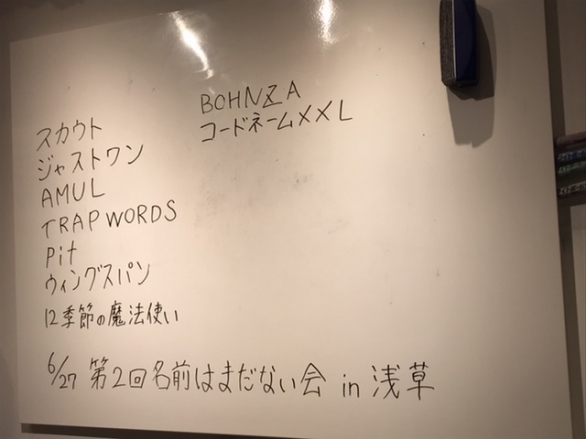 スカウト
ジャストワン
AMUL
TRAPWORDS
Pit
ウィングスパン
12季節の魔法使い
BOHNZA
コードネームXXL
6/27 第2回名前はまだない会 in 浅草